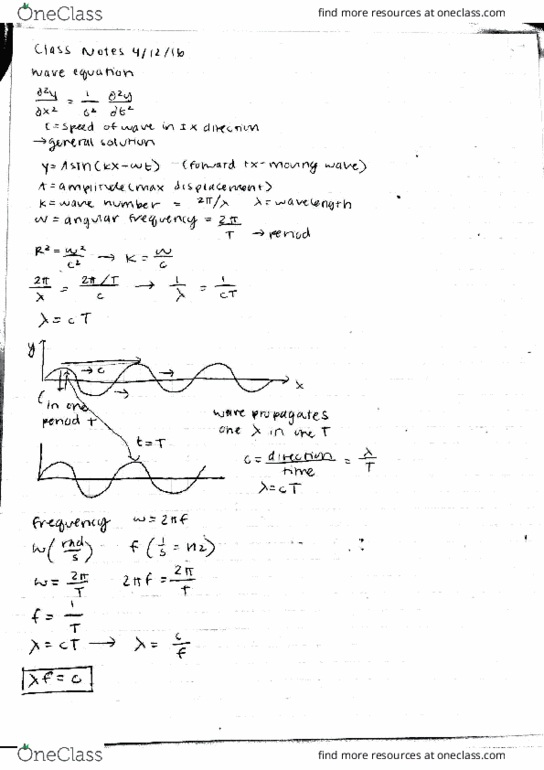 OneClass find more resources at oneclass.com
Class Notes 4/12/16
wave equation
∂²y/∂x² = 1/c² ∂²y/∂t²
c = speed of wave in ±x direction
→ general solution
y = Asin(kx-wt) - (forward +x-moving wave)
A = amplitude (max displacement)
K = wave number = 2π/λ λ = wavelength
w = angular frequency = 2π/T → period
R² = w²/c² → K = w/c
2π/λ = 2π/T/c → 1/λ = 1/cT
λ = cT
y
→ c
→
→
x
in one
period t
t=T
wave propagates
one λ in one T
c = direction/time = λ/T
λ = cT
frequency w = 2πf
w (rad/s) f (1/s = Hz)
w = 2π/T 2πf = 2π/T
f = 1/T
λ = cT → λ = c/f
λf = c
OneClass find more resources at oneclass.com